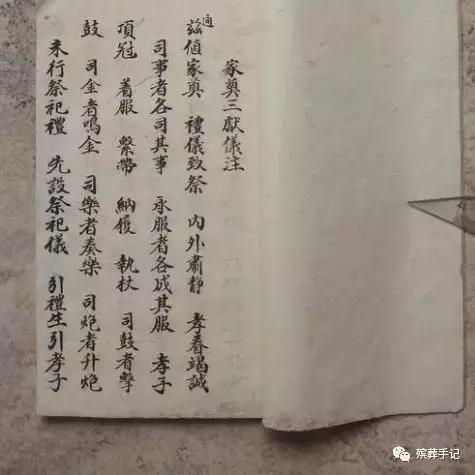 家奠三獻儀注
通
茲值家奠 禮儀致祭 內外肅靜 孝眷竭誠
司事者各司其事 承服者各成其服 孝子
項冠 着服 繫帶 納履 執杖 司鼓者擊
鼓 司金者鳴金 司樂者奏樂 司炮者升炮
未行祭祀禮 先設祭祀儀 引禮生引孝子
殡葬手记